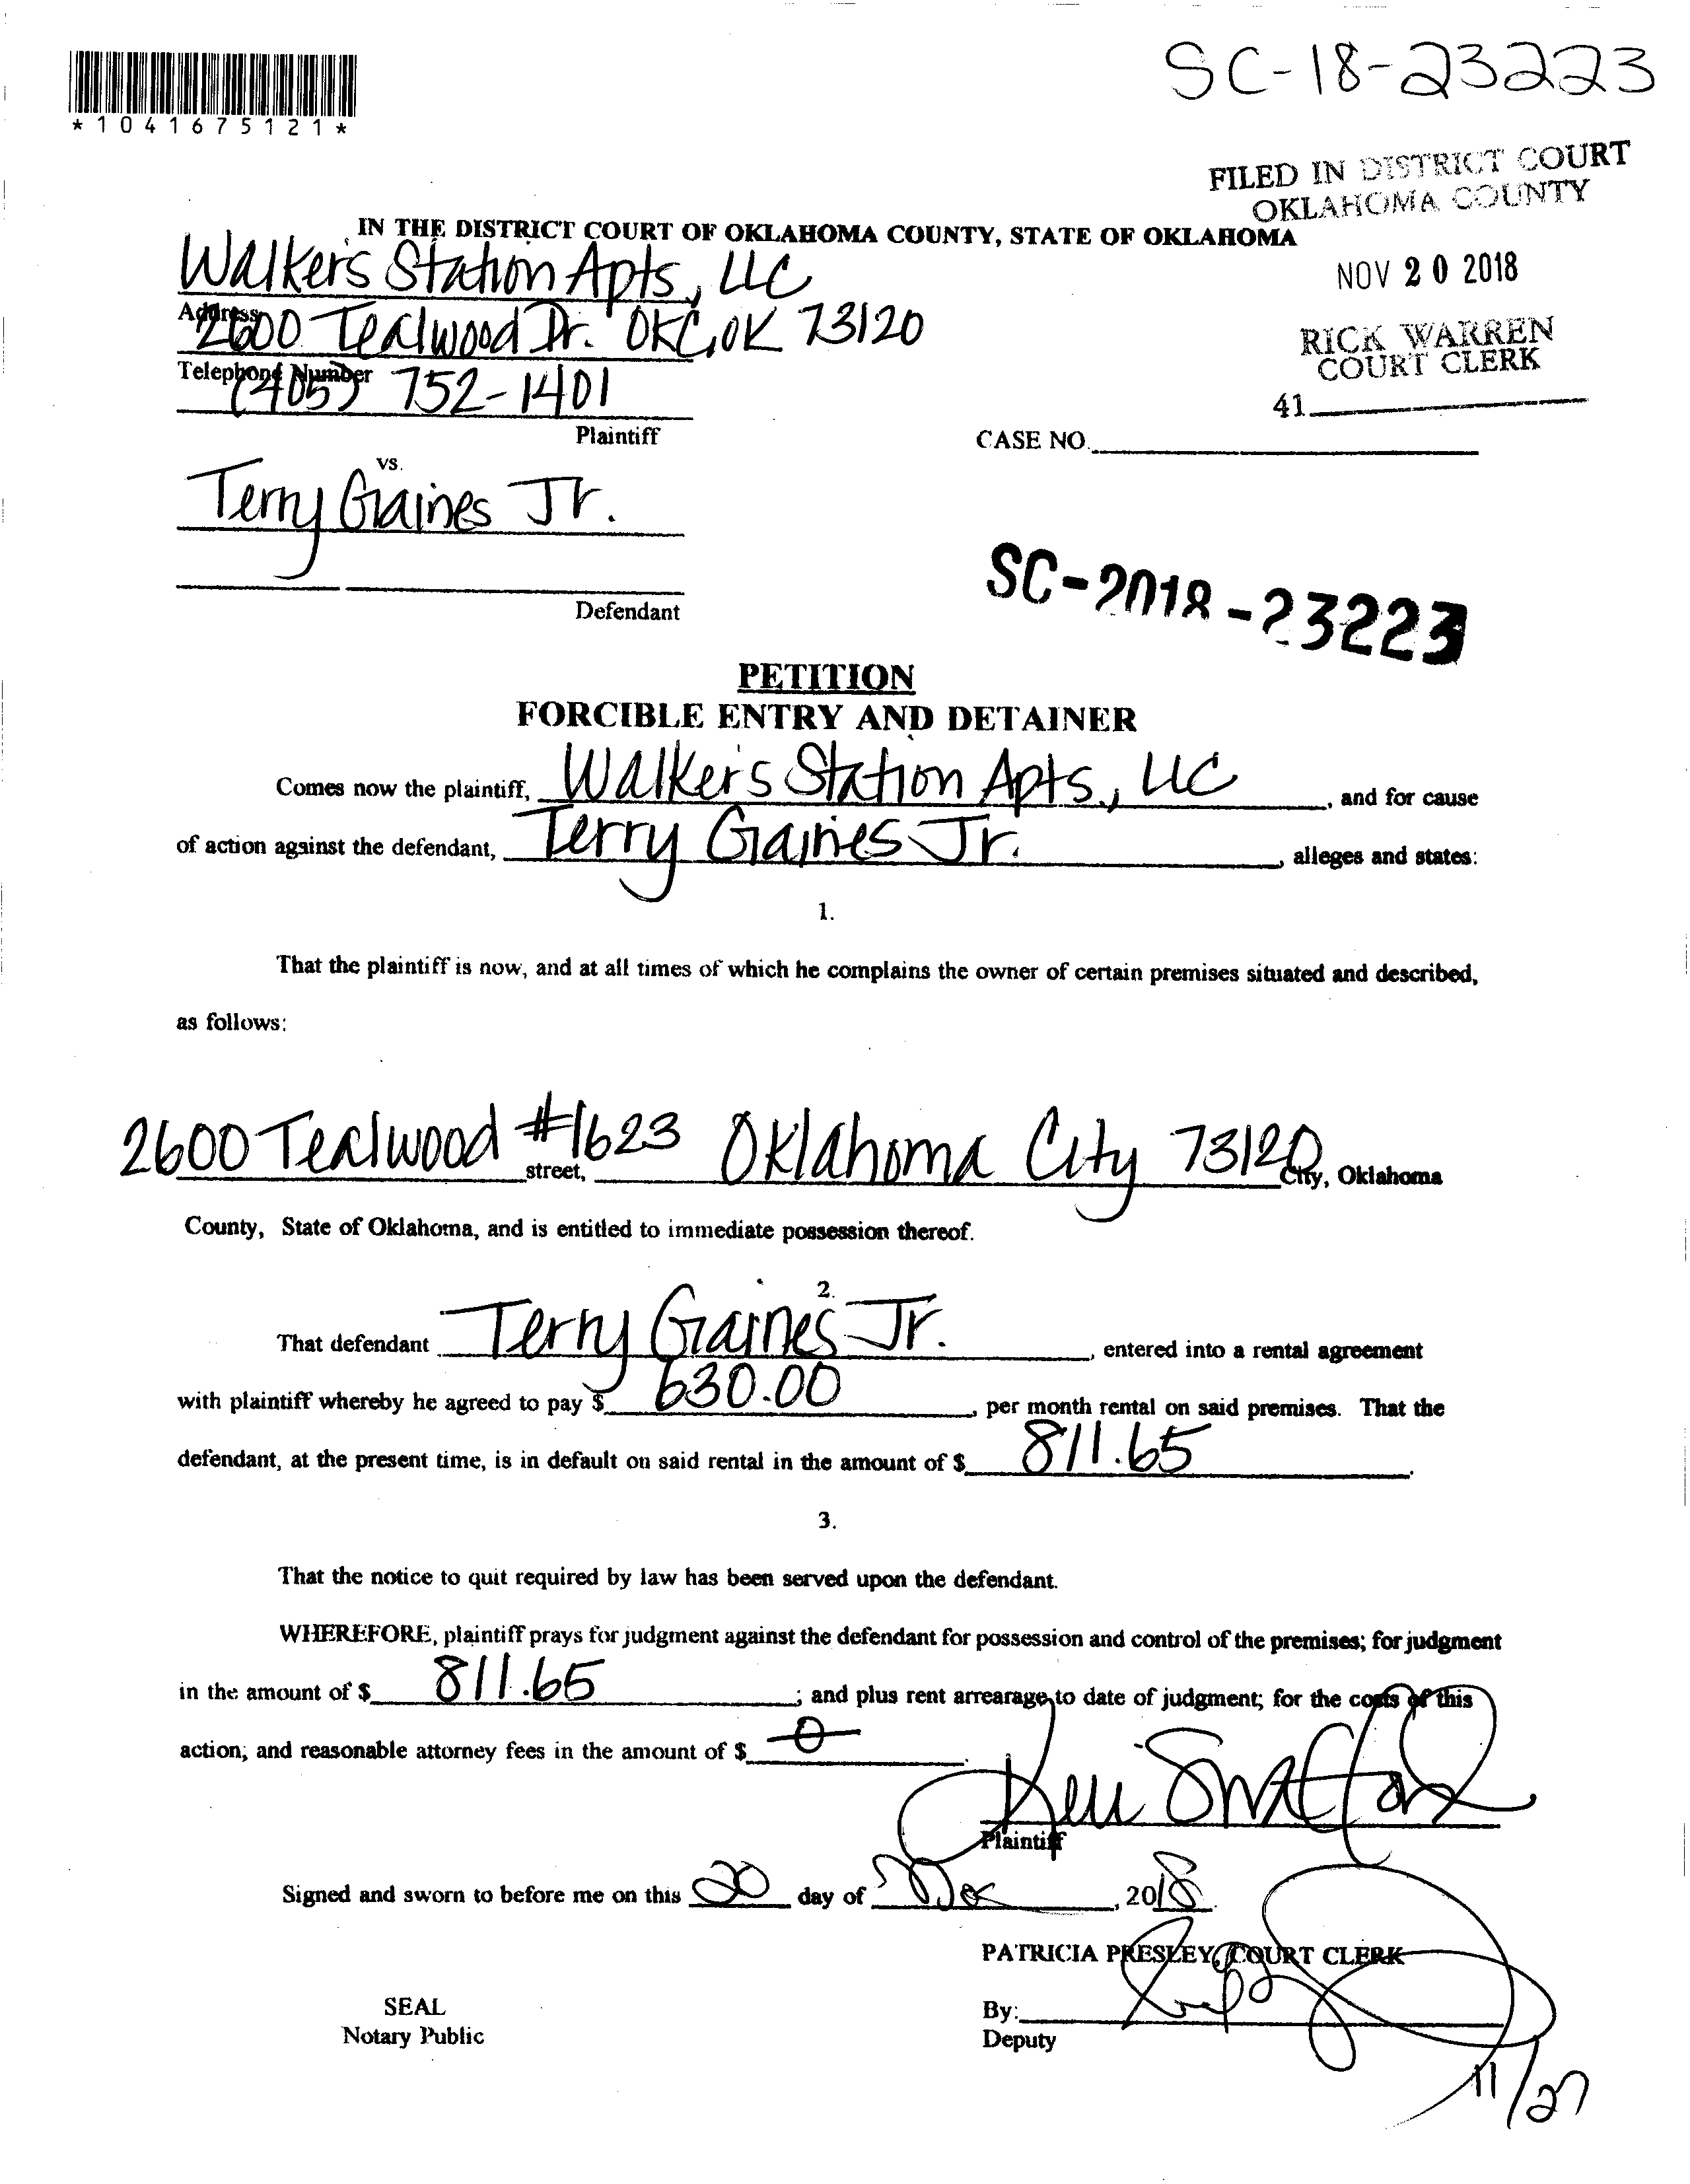 SC-18-23223
*1041675121*
FILED IN DISTRICT COURT
OKLAHOMA COUNTY
IN THE DISTRICT COURT OF OKLAHOMA COUNTY, STATE OF OKLAHOMA
NOV 20 2018
Walker's Station Apts, LLC
RICK WARREN
COURT CLERK
Address
2600 Tealwood Dr. OKC, OK 73120
Telephone Number
(405) 752-1401
41
Plaintiff
CASE NO.
vs.
Terry Gaines Jr.
Defendant
SC-2018-23223
PETITION
FORCIBLE ENTRY AND DETAINER
Comes now the plaintiff, Walker's Station Apts., LLC, and for cause
of action against the defendant, Terry Gaines Jr., alleges and states:
1.
That the plaintiff is now, and at all times of which he complains the owner of certain premises situated and described,
as follows:
2600 Tealwood #1623 street, Oklahoma City 73120 City, Oklahoma
County, State of Oklahoma, and is entitled to immediate possession thereof.
2.
That defendant Terry Gaines Jr., entered into a rental agreement
with plaintiff whereby he agreed to pay $ 630.00, per month rental on said premises. That the
defendant, at the present time, is in default on said rental in the amount of $ 811.65.
3.
That the notice to quit required by law has been served upon the defendant.
WHEREFORE, plaintiff prays for judgment against the defendant for possession and control of the premises; for judgment
in the amount of $ 811.65; and plus rent arrearage to date of judgment; for the costs of this
action; and reasonable attorney fees in the amount of $ 0.
Plaintiff
Signed and sworn to before me on this 20 day of , 2018.
PATRICIA PRESLEY, COURT CLERK
SEAL
Notary Public
By:
Deputy
11/27